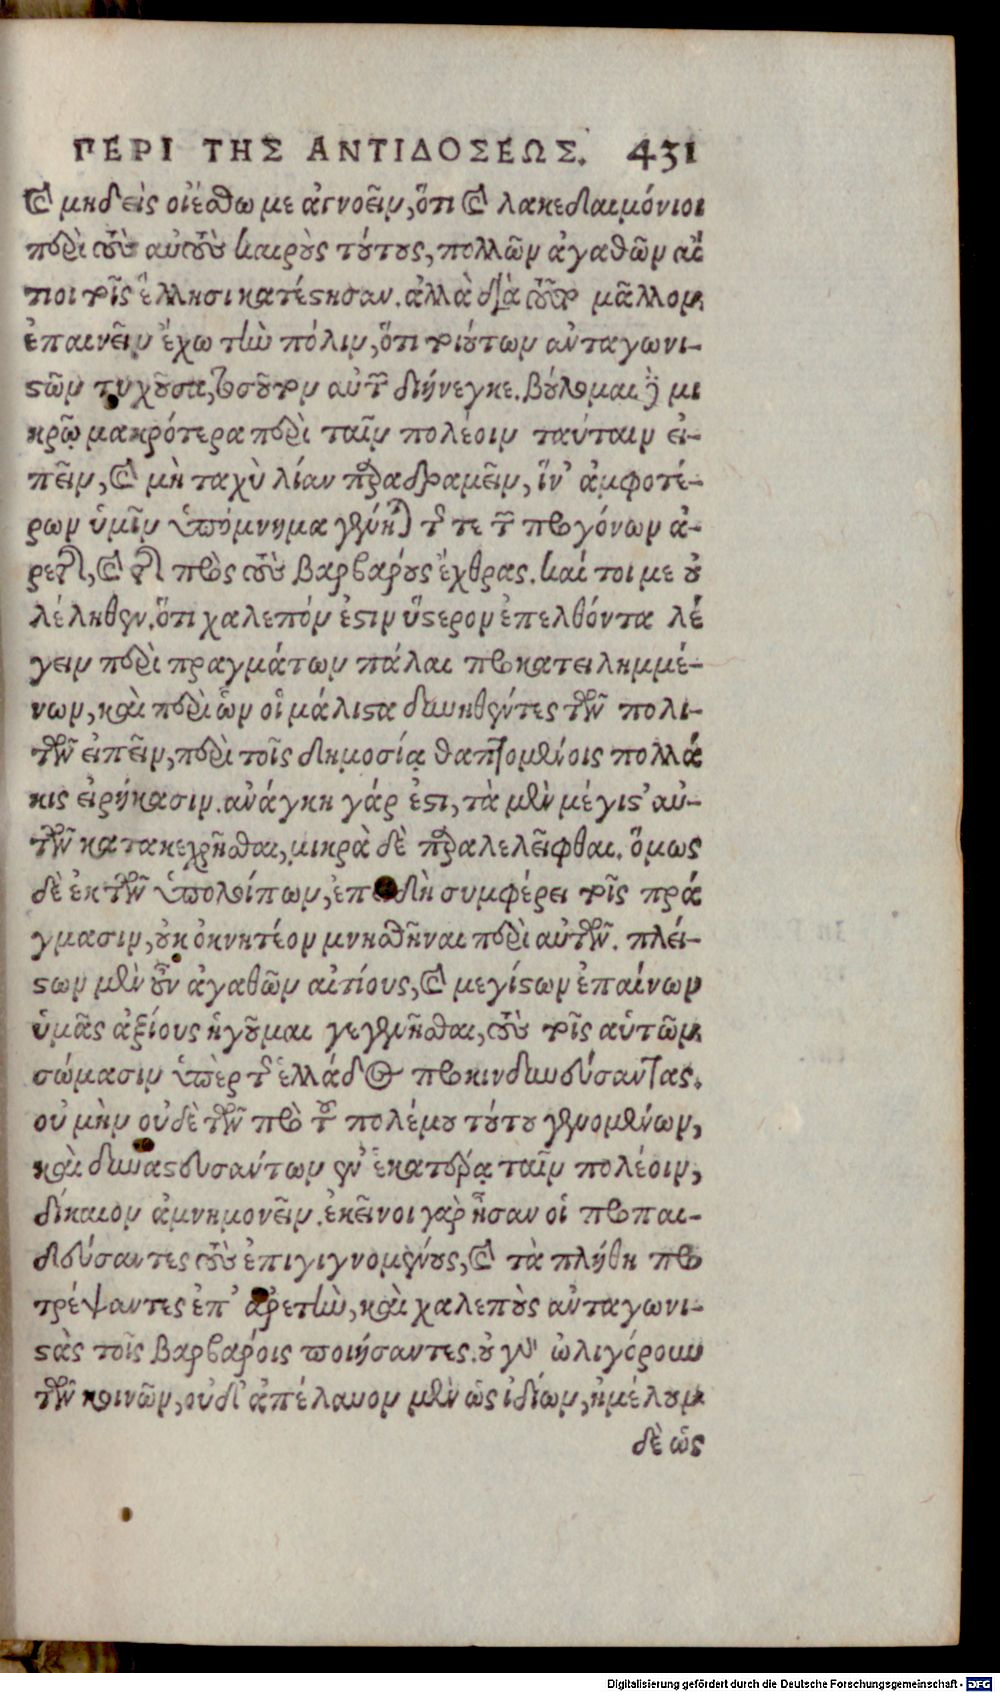 ΠΕΡΙ ΤΗΣ ΑΝΤΙΔΟΣΕΩΣ. 431
καὶ μηδεὶς οἰέσθω με ἀγνοεῖν, ὅτι καὶ λακεδαιμόνιοι
περὶ τοὺς αὐτοὺς καιροὺς τούτους, πολλῶν ἀγαθῶν αἴ
τιοι τοῖς ἕλλησι κατέστησαν. ἀλλὰ διὰ τοῦτο μᾶλλον
ἐπαινεῖν ἔχω τὴν πόλιν, ὅτι τοιούτων ἀνταγωνι-
στῶν τυχοῦσα, τοσοῦτον αὐτῶν διήνεγκε. βούλομαι δὲ μι
κρῷ μακρότερα περὶ ταῖν πολέοιν ταύταιν εἰ-
πεῖν, καὶ μὴ ταχὺ λίαν παραδραμεῖν, ἵν' ἀμφοτέ-
ρων ὑμῖν ὑπόμνημα γένηται τῆς τε τῶν προγόνων ἀ-
ρετῆς, καὶ τῆς πρὸς τοὺς βαρβάρους ἔχθρας. καί τοι με οὐ
λέληθεν, ὅτι χαλεπόν ἐστιν ὕστερον ἐπελθόντα λέ
γειν περὶ πραγμάτων πάλαι προκατειλημμέ-
νων, καὶ περὶ ὧν οἱ μάλιστα δυνηθέντες τῶν πολι-
τῶν εἰπεῖν, περὶ τοῖς δημοσίᾳ θαπτομένοις πολλά
κις εἰρήκασιν. ἀνάγκη γάρ ἐστι, τὰ μὲν μέγιστ' αὐ-
τῶν κατακεχρῆσθαι, μικρὰ δὲ παραλελεῖφθαι. ὅμως
δὲ ἐκ τῶν ὑπολοίπων, ἐπειδὴ συμφέρει τοῖς πρά
γμασιν, οὐκ ὀκνητέον μνησθῆναι περὶ αὐτῶν. πλεί-
στων μὲν οὖν ἀγαθῶν αἰτίους, καὶ μεγίστων ἐπαίνων
ὑμᾶς ἀξίους ἡγοῦμαι γεγενῆσθαι, τοὺς τοῖς αὑτῶν
σώμασιν ὑπὲρ τῆς ἑλλάδος προκινδυνεύσαντας.
οὐ μὴν οὐδὲ τῶν πρὸ τοῦ πολέμου τούτου γενομένων,
καὶ δυναστευσάντων ἐν ἑκατέρᾳ ταῖν πολέοιν,
δίκαιον ἀμνημονεῖν. ἐκεῖνοι γὰρ ἦσαν οἱ προπαι-
δεύσαντες τοὺς ἐπιγιγνομένους, καὶ τὰ πλήθη προ
τρέψαντες ἐπ' ἀρετὴν, καὶ χαλεποὺς ἀνταγωνι-
στὰς τοῖς βαρβάροις ποιήσαντες. οὐ γὰρ ὠλιγόρουν
τῶν κοινῶν, οὐδ' ἀπέλαυον μὲν ὡς ἰδίων, ἠμέλουν
δὲ ὡς
Digitalisierung gefördert durch die Deutsche Forschungsgemeinschaft - DFG